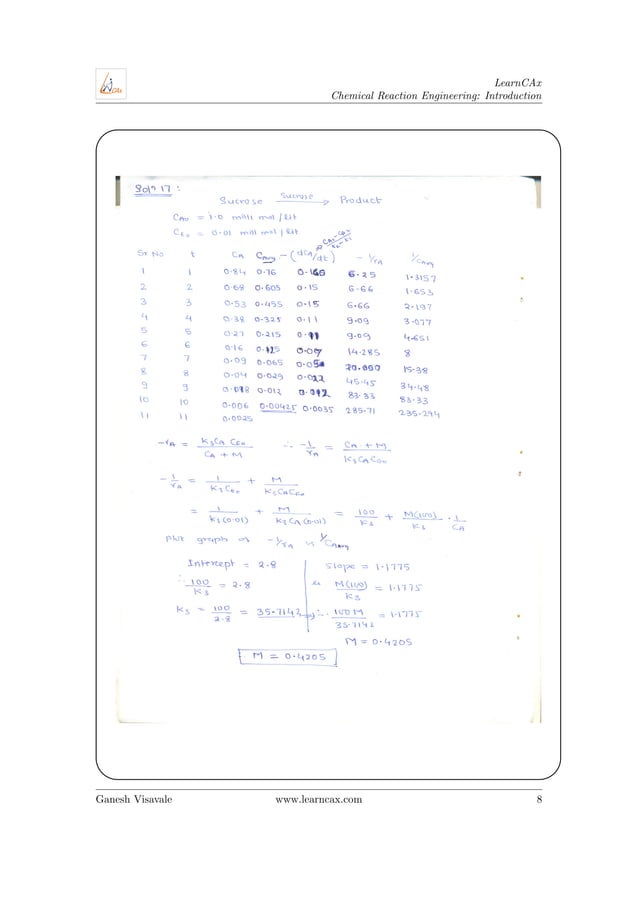 LearnCAx
Chemical Reaction Engineering: Introduction
Soln 17 :
Sucrose —sucrase→ Product
CA0 = 1.0 milli mol / lit
CE0 = 0.01 milli mol / lit
Sr. No t CA CAavg -(dCA/dt) → (CA1-CA2)/(t2-t1) -1/rA 1/CAavg
1 1 0.84 0.76 6.25 1.3157
2 2 0.68 0.605 0.15 6.66 1.653
3 3 0.53 0.455 0.15 6.66 2.197
4 4 0.38 0.325 0.11 9.09 3.077
5 5 0.27 0.215 0.11 9.09 4.651
6 6 0.16 0.125 0.07 14.285 8
7 7 0.09 0.065 0.05 20.000 15.38
8 8 0.04 0.029 0.022 45.45 34.48
9 9 0.018 0.012 0.012 83.33 83.33
10 10 0.006 0.00425 0.0035 285.71 235.294
11 11 0.0025
-rA = K3CA CE0 / CA + M ∴ -1/rA = CA + M / K3CACE0
-1/rA = 1 / K3CE0 + M / K3CACE0
= 1 / K3(0.01) + M / K3CA(0.01) = 100 / K3 + M(100) / K3 · 1 / CA
Plot graph of -1/rA vs 1/CAavg
Intercept = 2.8
∴ 100 / K3 = 2.8
K3 = 100 / 2.8 = 35.7142
Slope = 1.1775
M(100) / K3 = 1.1775
∴ 100M / 35.7142 = 1.1775
M = 0.4205
M = 0.4205
Ganesh Visavale www.learncax.com 8